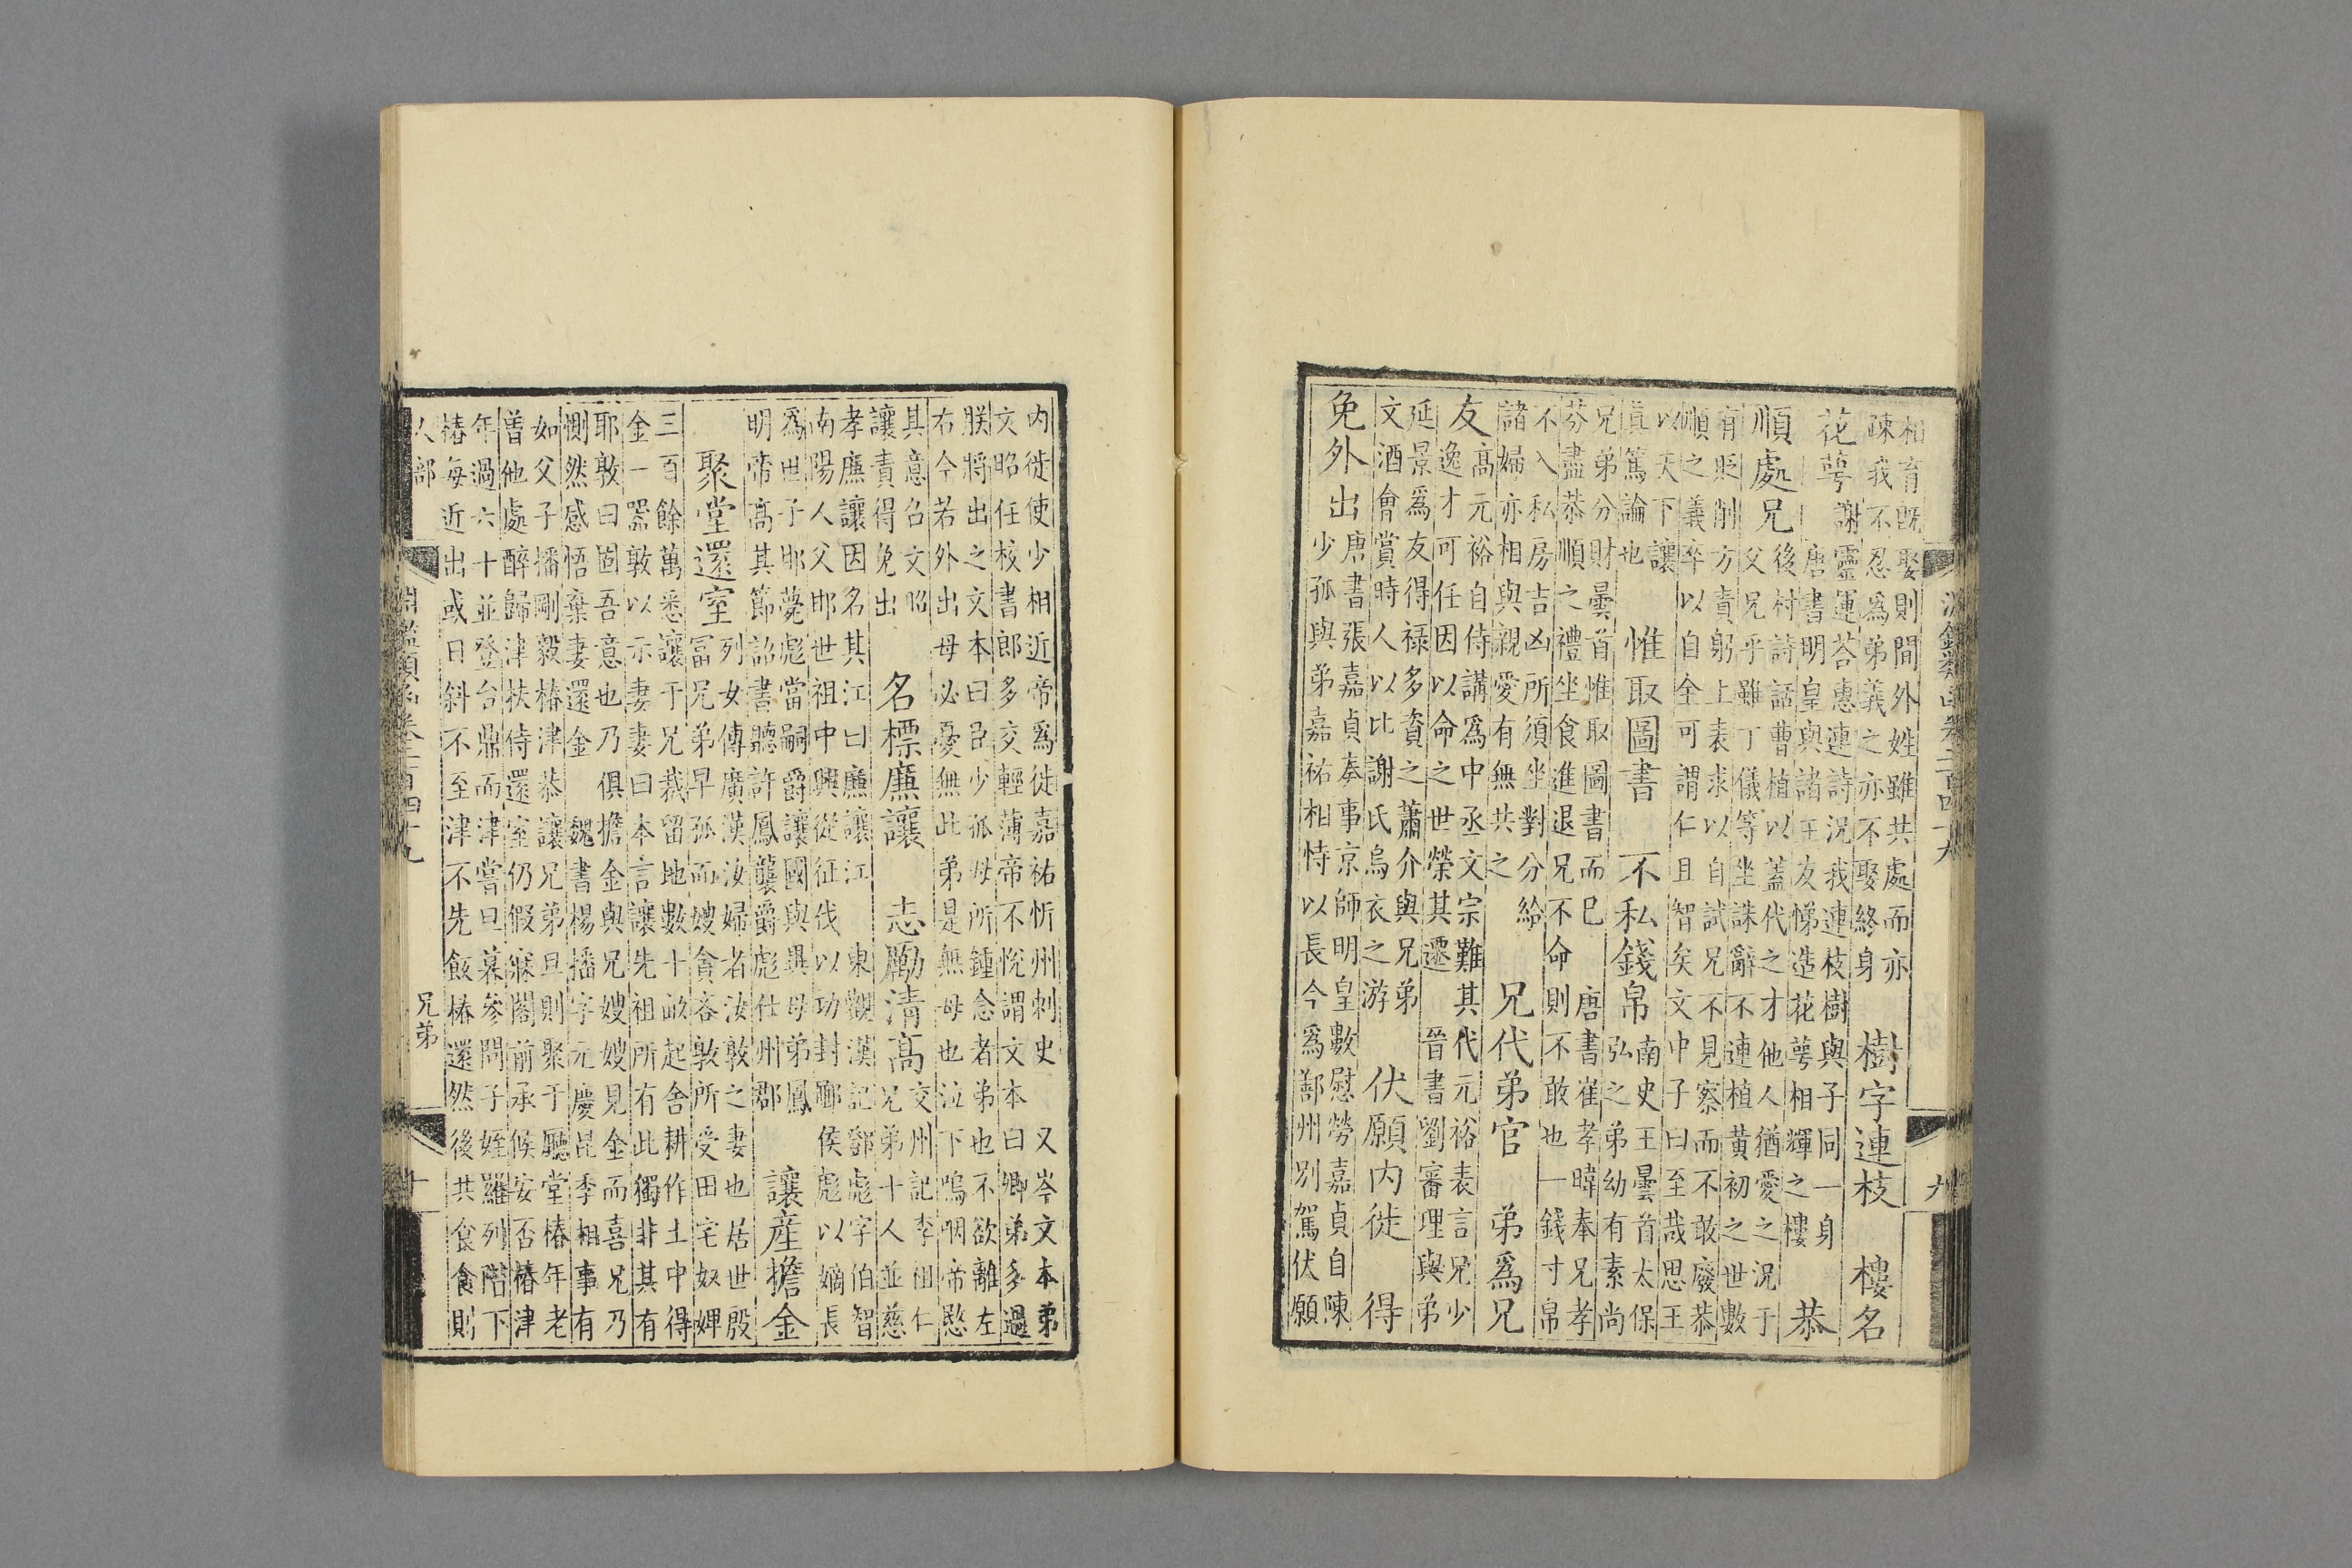 淵鑑類函卷二百四十九 九
相育既娶則間外姓雖共處而亦
疎我不忍爲弟義之亦不娶終身
樹字連枝 樓名
花萼
謝靈運荅惠連詩況我連枝樹與子同一身
唐書明皇與諸王友悌造花萼相輝之樓
恭
順處兄
後村詩話曹植以蓋代之才他人猶愛之況于
父兄乎雖丁儀等坐誅辭不連植黃初之世數
有貶削方責躬上表求以自試兄不見察而不敢廢恭
順之義卒以自全可謂仁且智矣文中子曰至哉思王
以天下讓
眞篤論也
惟取圖書 不私錢帛
南史王曇首太保
弘之弟幼有素尚
兄弟分財曇首惟取圖書而已 唐書崔孝暐奉兄孝
芬盡恭順之禮坐食進退兄不命則不敢也一錢寸帛
不入私房吉凶所須坐對分給
諸婦亦相與親愛有無共之
兄代弟官 弟爲兄
友
高元裕自侍講爲中丞文宗難其代元裕表言兄少
逸才可任因以命之世榮其遷 晉書劉審理與弟
延景爲友得祿多資之蕭介與兄弟
文酒會賞時人以比謝氏烏衣之游
伏願内徙 得
免外出
唐書張嘉貞奏事京師明皇數慰勞嘉貞自陳
少孤與弟嘉祐相恃以長今爲鄯州別駕伏願
内徙使少相近帝爲徙嘉祐忻州刺史 又岑文本弟
文昭任校書郎多交輕薄帝不悅謂文本曰卿弟多過
朕將出之文本曰臣少孤母所鍾念者弟也不欲離左
右今若外出母必憂無此弟是無母也泣下嗚咽帝愍
其意召文昭
讓責得免出
名標廉讓 志勵清高
交州記李祖仁
兄弟十人並慈
孝廉讓因名其江曰廉讓江 東觀漢記鄧彪字伯智
南陽人父邯世祖中興從征伐以功封鄳侯彪以嫡長
爲世子邯薨彪當嗣爵讓國與異母弟鳳
明帝高其節詔書聽許鳳襲爵彪仕州郡
讓産擔金
聚堂還室
列女傳廣漢汝婦者汝敦之妻也居世殷
冨兄弟早孤而嫂貪吝敦所受田宅奴婢
三百餘萬悉讓于兄裁留地數十畝起舍耕作土中得
金一器敦以示妻妻曰本言讓先祖所有此獨非其有
耶敦曰固吾意也乃俱擔金與兄嫂嫂見金而喜兄乃
惻然感悟棄妻還金 魏書楊播字元慶昆季相事有
如父子播剛毅椿津恭讓兄弟旦則聚于廳堂椿年老
曾他處醉歸津扶侍還室仍假寐閤前承候安否椿津
年過六十並登台鼎而津嘗旦暮參問子姪羅列階下
椿每近出或日斜不至津不先飯椿還然後共食食則
人部 淵鑑類函卷二百四十九 兄弟 十